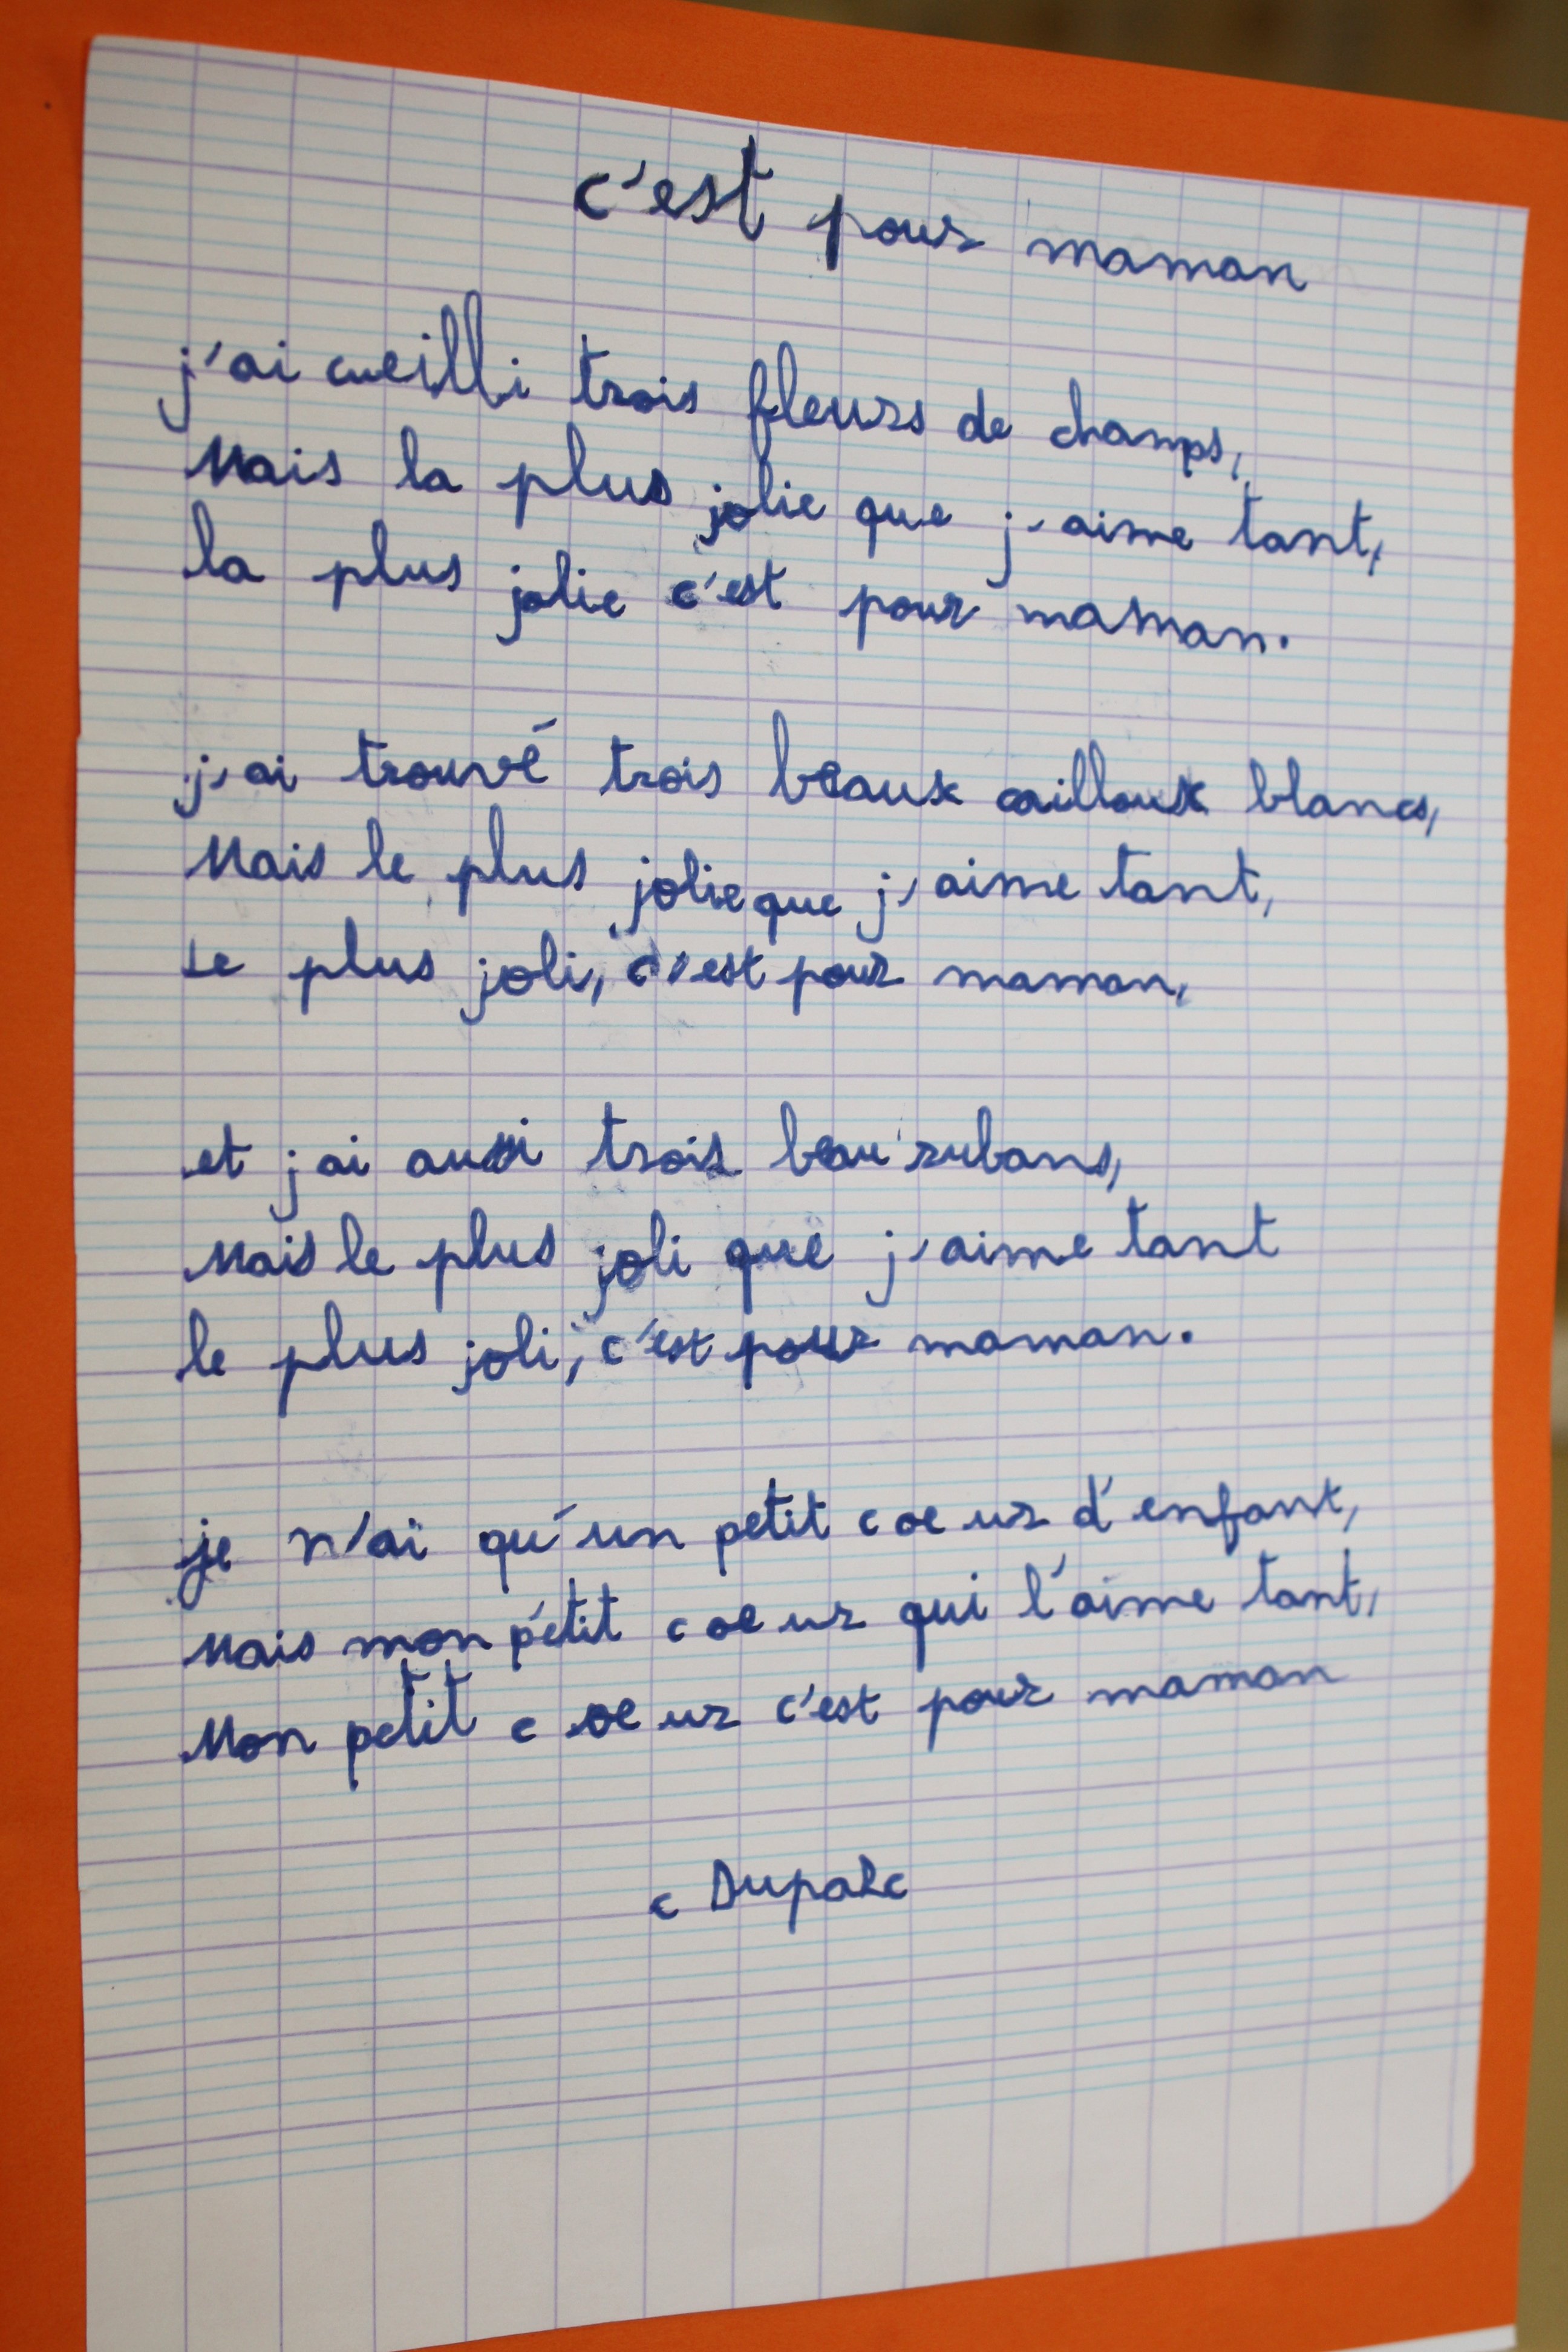 c'est pour maman
j'ai cueilli trois fleurs de champs,
Mais la plus jolie que j'aime tant,
la plus jolie c'est pour maman.
j'ai trouvé trois beaux cailloux blancs,
Mais le plus jolie que j'aime tant,
Le plus joli, c'est pour maman,
et j ai aussi trois beau rubans,
Mais le plus joli que j'aime tant
le plus joli, c'est pour maman.
je n'ai qu'un petit coeur d'enfant,
Mais mon petit coeur qui l'aime tant,
Mon petit coeur c'est pour maman
c Duparc